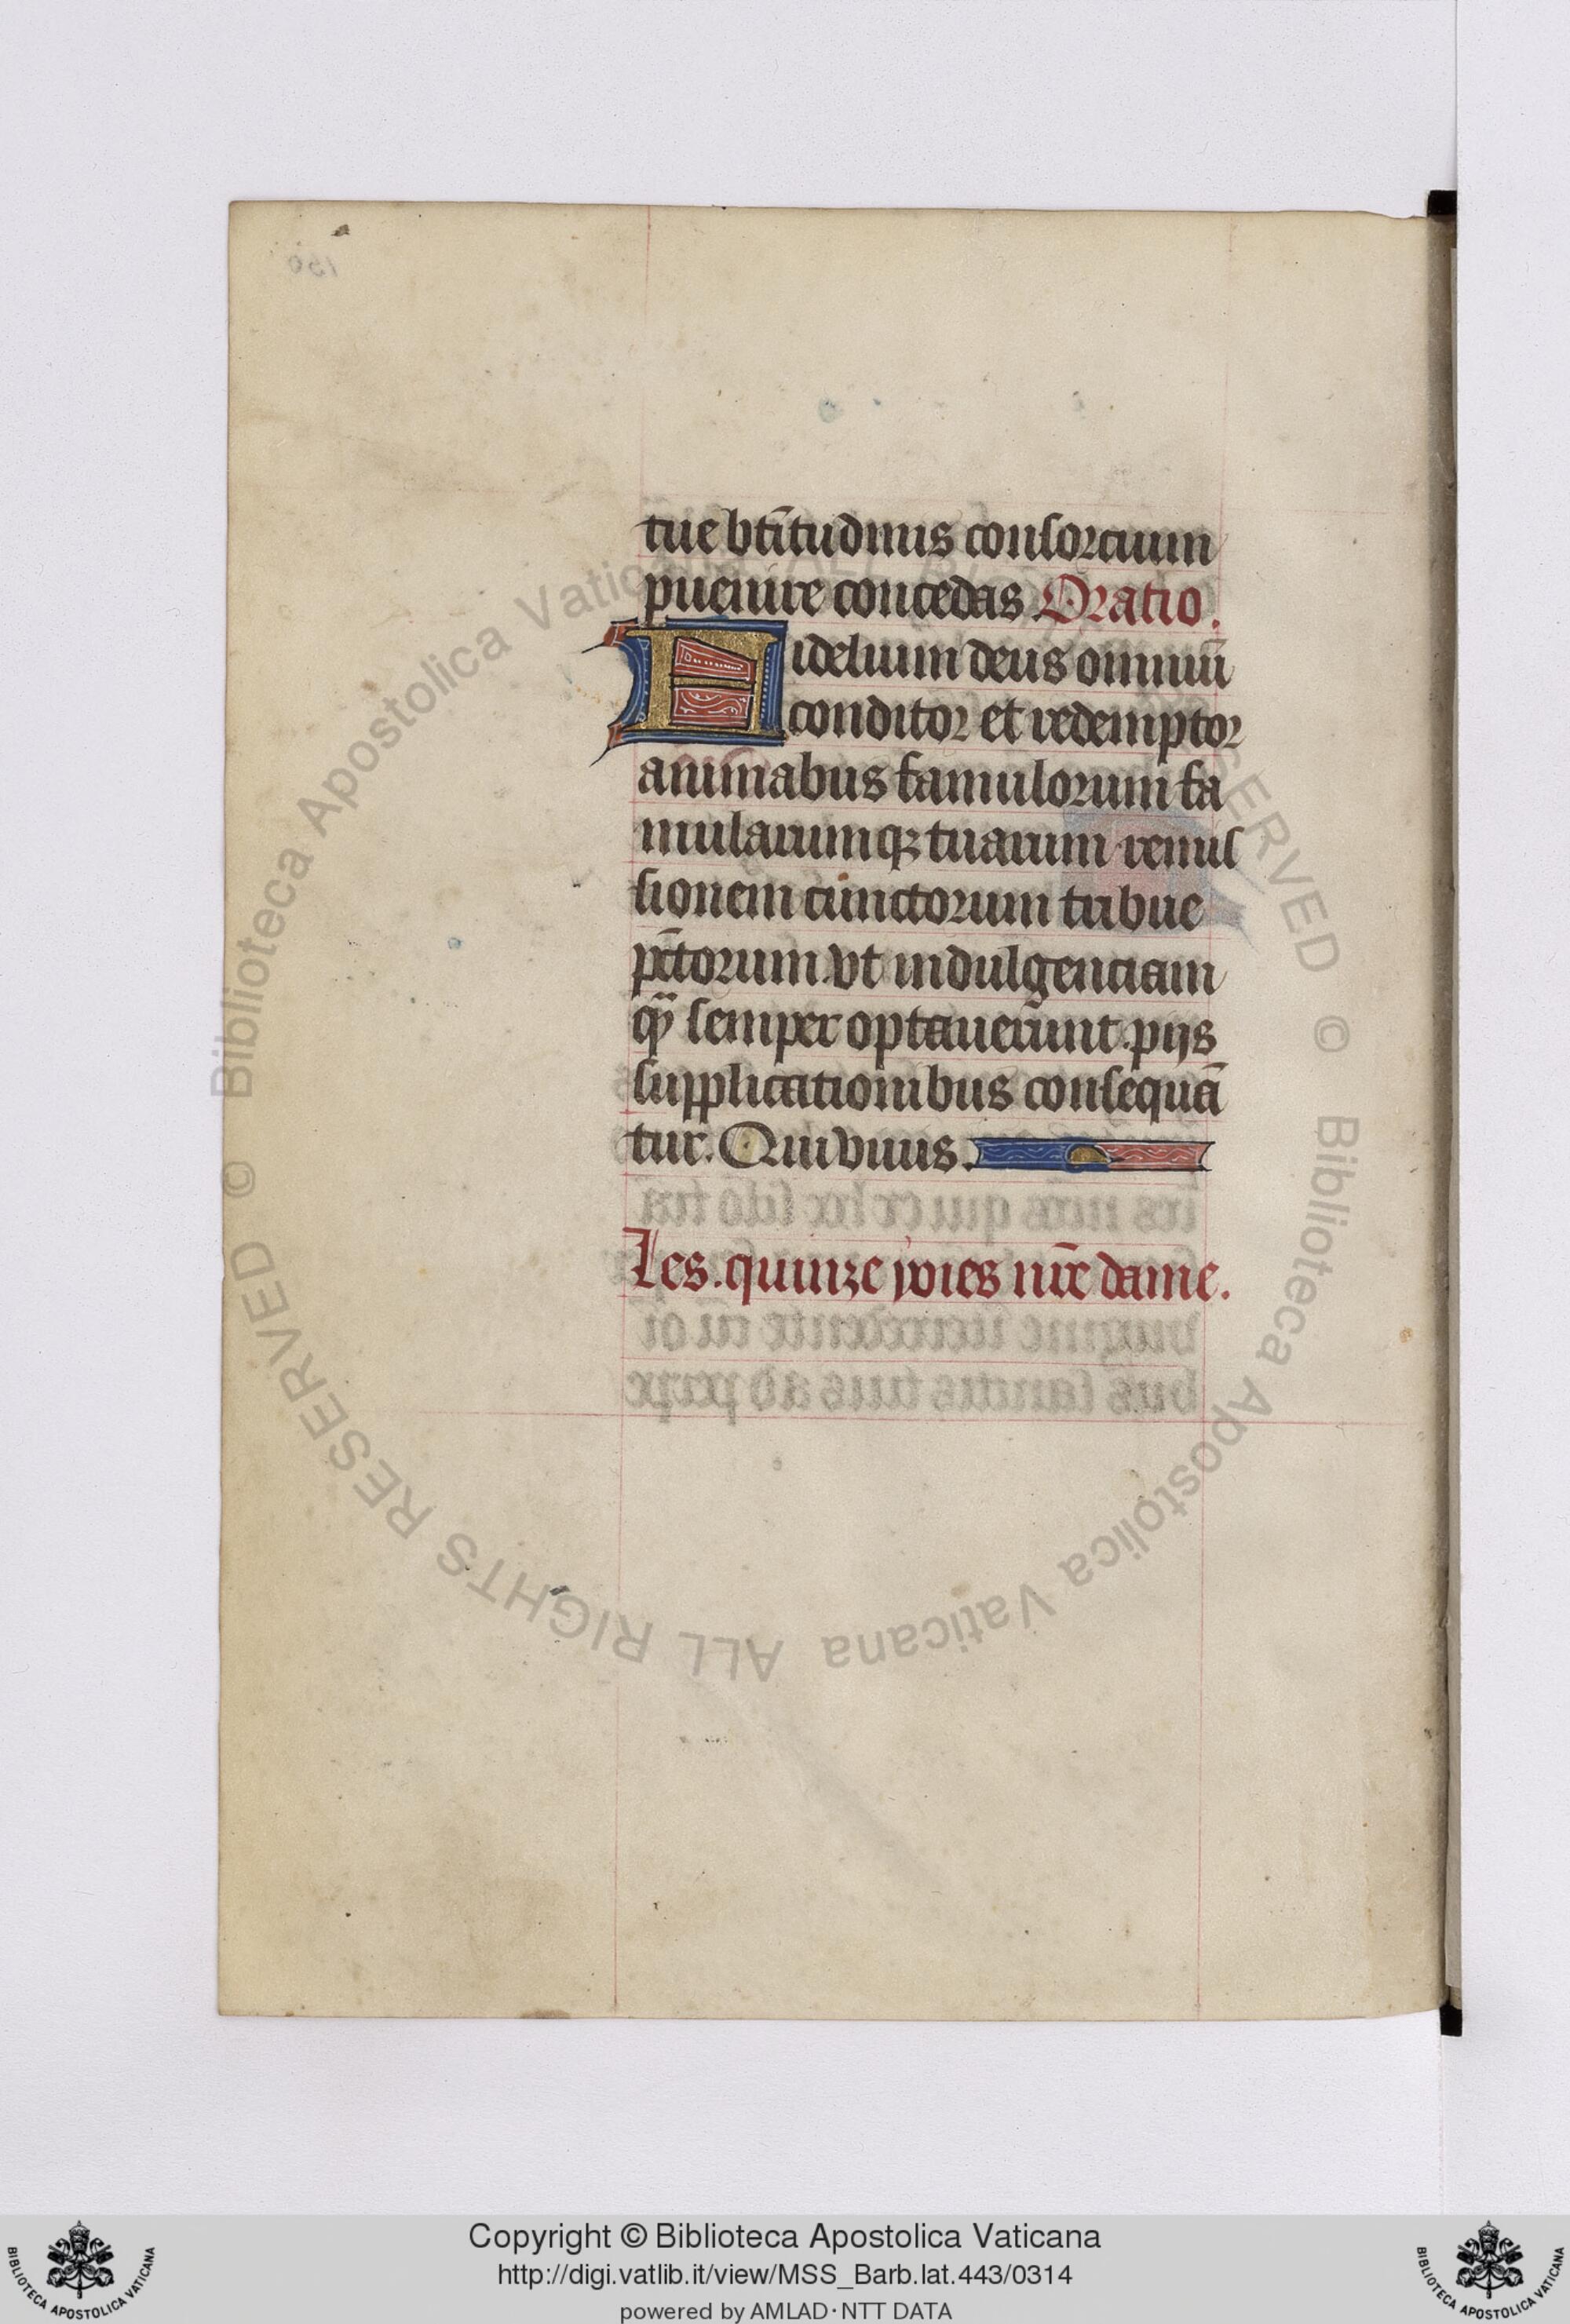 tue btı̄tudinis consorcium
puenire concedas Oratio.
Fidelium deus omniū
conditor et redemptor
animabus famulorum fa
mularumqꝫ tuarum remis
sionem cunctorum tribue
pctōrum. vt indulgenciam
qͫ semper optauerunt. pijs
supplicationibus consequā
tur. Qui viuis.
Les. quinze ioies nr̄e dame.
150
© Biblioteca Apostolica Vaticana ALL RIGHTS RESERVED © Biblioteca Apostolica Vaticana ALL RIGHTS RESERVED
Copyright © Biblioteca Apostolica Vaticana
http://digi.vatlib.it/view/MSS_Barb.lat.443/0314
powered by AMLAD·NTT DATA
BIBLIOTECA APOSTOLICA VATICANA
BIBLIOTECA APOSTOLICA VATICANA